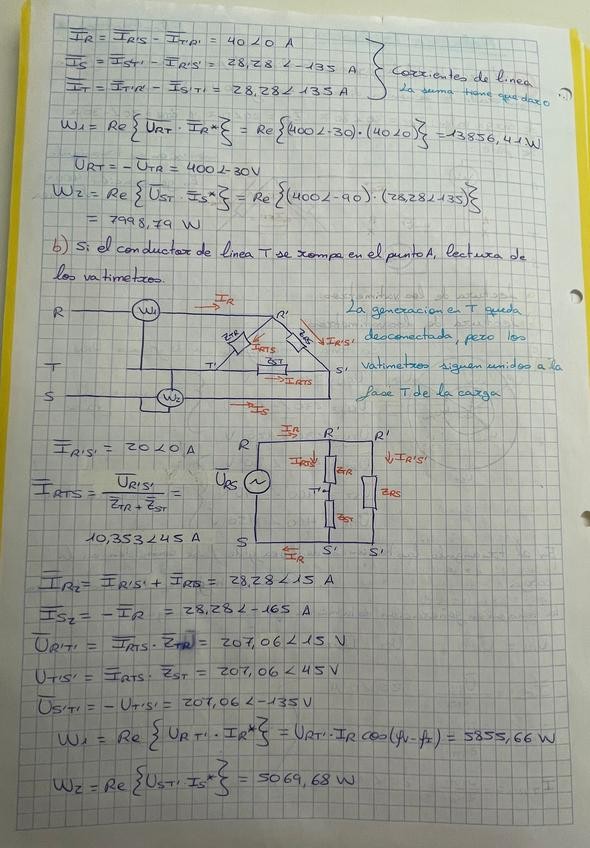 I̅R = I̅R'S' - I̅T'R' = 40∠0 A
I̅S = I̅S'T' - I̅R'S' = 28,28∠-135 A
I̅T = I̅T'R' - I̅S'T' = 28,28∠135 A
Corrientes de linea
La suma tiene que dar 0
W1 = Re{U̅RT · I̅R*} = Re{(400∠-30)·(40∠0)} = 13856,41 W
U̅RT = -U̅TR = 400∠-30 V
W2 = Re{U̅ST · I̅S*} = Re{(400∠-90)·(28,28∠135)}
= 7998,79 W
b) Si el conductor de linea T se rompe en el punto A, lectura de
los vatimetros.
R W1 IR R'
ZTR IRTS ZRS IR'S'
T T' ZST S'
IRTS
S W2 IS
La generacion en T queda
desconectada, pero los
vatimetros siguen unidos a la
fase T de la carga
I̅R'S' = 20∠0 A
I̅RTS = U̅R'S' / (Z̅TR + Z̅ST) =
10,353∠45 A
R IR R' R'
IRTS ZTR IR'S'
U̅RS T' ZRS
ZST
S IR S' S'
I̅R2 = I̅R'S' + I̅RTS = 28,28∠15 A
I̅S2 = -I̅R = 28,28∠-165 A
U̅R'T' = I̅RTS · Z̅TR = 207,06∠15 V
UT'S' = I̅RTS · Z̅ST = 207,06∠45 V
U̅S'T' = -UT'S' = 207,06∠-135 V
W1 = Re{URT' · IR*} = URT' · IR cos(fv-fI) = 5855,66 W
W2 = Re{UST' · IS*} = 5069,68 W